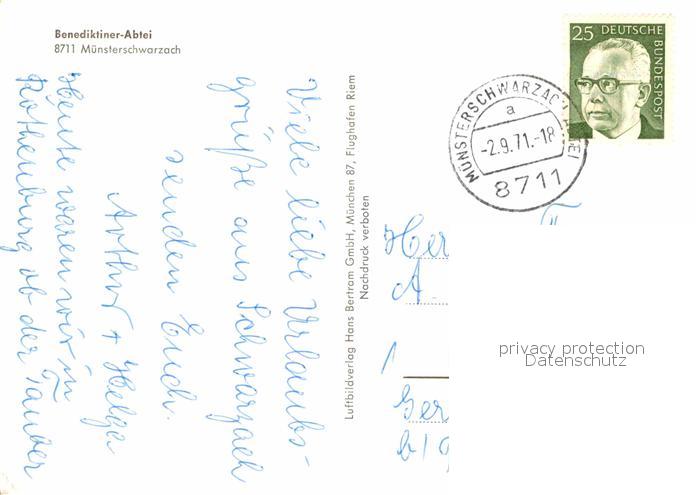 Benediktiner-Abtei
8711 Münsterschwarzach
Viele liebe Urlaubs-
grüße aus Schwarzach
senden Euch
Arthur + Helga
Heute waren wir in
Rothenburg ob der Tauber
Luftbildverlag Hans Bertram GmbH, München 87, Flughafen Riem
Nachdruck verboten
25 DEUTSCHE
BUNDESPOST
MÜNSTERSCHWARZACH ABTEI
a
-2.9.71.-18
8711
Her
A.
1
Ger
b/g
privacy protection
Datenschutz